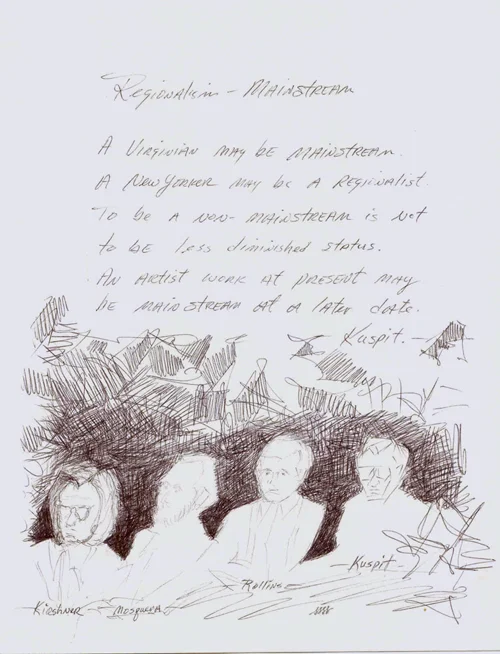 Regionalism - Mainstream
A Virginian may be mainstream.
A New Yorker may be a Regionalist.
To be a non-mainstream is not
to be less diminished status.
An artist work at present may
be mainstream at a later date.
Kuspit.
Kuspit
Rollins
Kirshner Mosquera